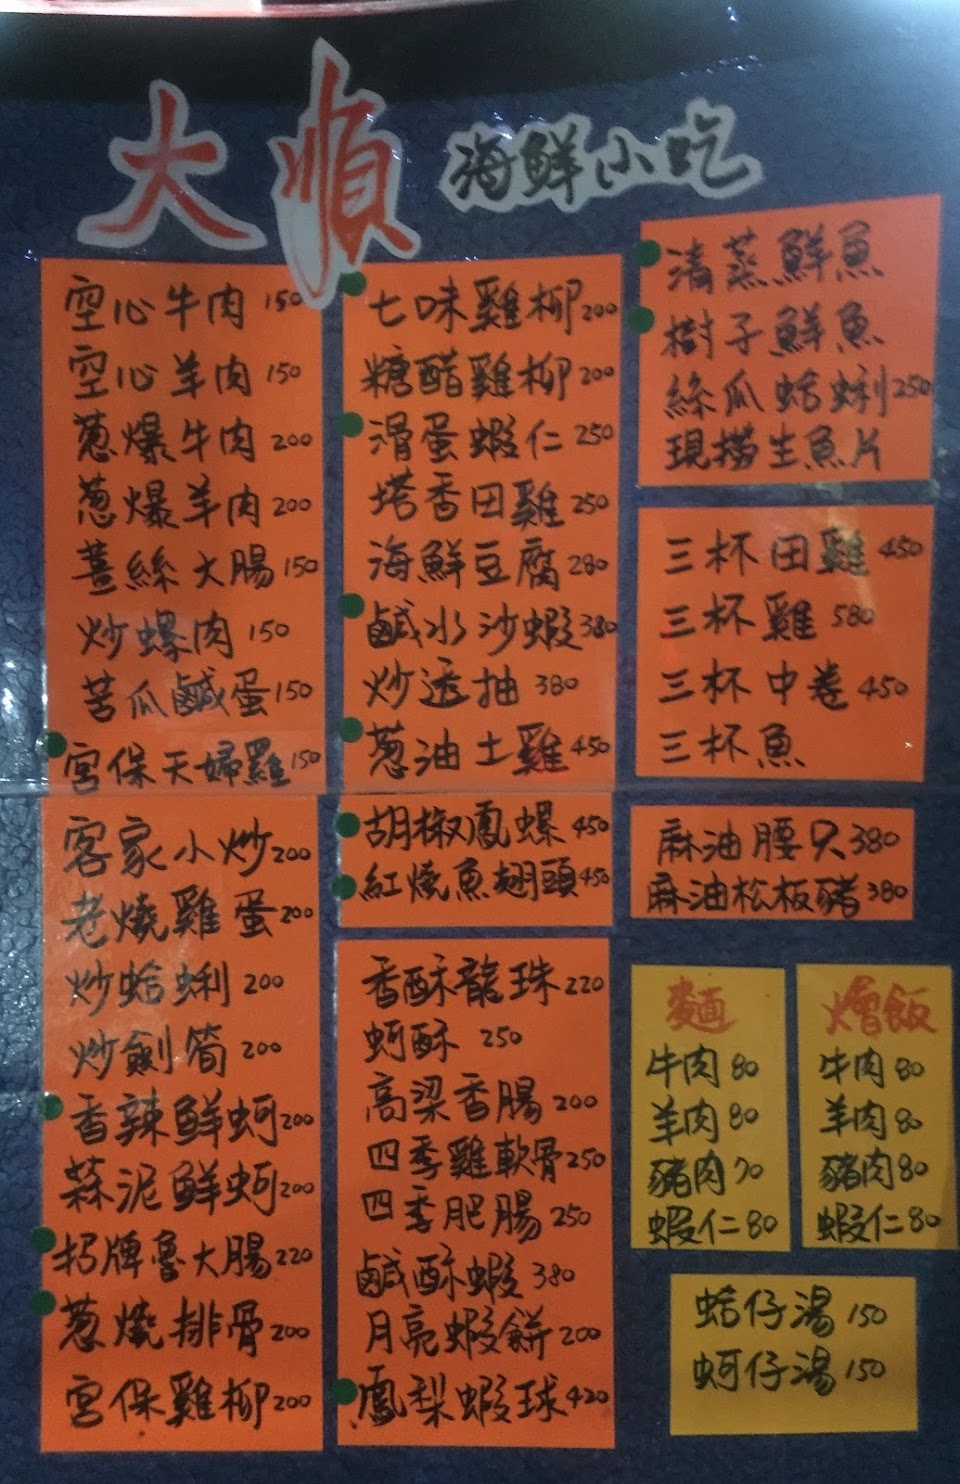 大順 海鮮小吃
空心牛肉 150
空心羊肉 150
蔥爆牛肉 200
蔥爆羊肉 200
薑絲大腸 150
炒螺肉 150
苦瓜鹹蛋 150
宮保天婦羅 150
客家小炒 200
老燒雞蛋 200
炒蛤蜊 200
炒劍筍 200
香辣鮮蚵 200
蒜泥鮮蚵 200
招牌魯大腸 220
蔥燒排骨 200
宮保雞柳 200
七味雞柳 200
糖醋雞柳 200
滑蛋蝦仁 250
塔香田雞 250
海鮮豆腐 280
鹹水沙蝦 380
炒透抽 380
蔥油土雞 450
胡椒鳳螺 450
紅燒魚翅頭 450
香酥龍珠 220
蚵酥 250
高梁香腸 200
四季雞軟骨 250
四季肥腸 250
鹹酥蝦 380
月亮蝦餅 200
鳳梨蝦球 420
清蒸鮮魚
樹子鮮魚
絲瓜蛤蜊 250
現撈生魚片
三杯田雞 450
三杯雞 580
三杯中卷 450
三杯魚
麻油腰只 380
麻油松板豬 380
麵
牛肉 80
羊肉 80
豬肉 70
蝦仁 80
燴飯
牛肉 80
羊肉 80
豬肉 80
蝦仁 80
蛤仔湯 150
蚵仔湯 150